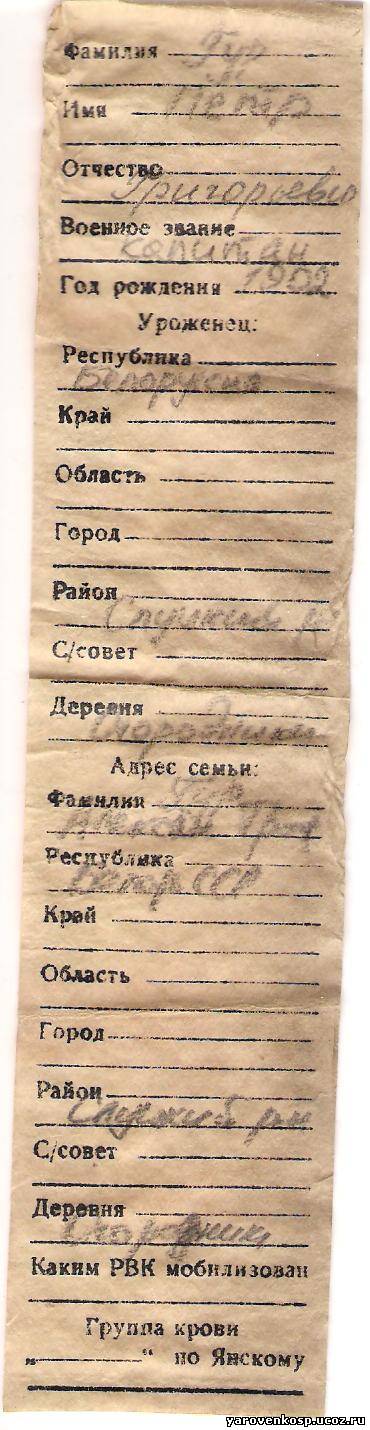 Фамилия Гур
Имя Пётр
Отчество
Григорьевич
Военное звание
капитан
Год рождения 1902
Уроженец:
Республика
Белоруссия
Край
Область
Город
Район
Слуцкий
С/совет
Деревня
Адрес семьи:
Фамилия Гур
Республика
Белор ССР
Край
Область
Город
Район
Слуцкий рн
С/совет
Деревня
Каким РВК мобилизован
Группа крови
„ “ по Янскому
yarovenkosp.ucoz.ru